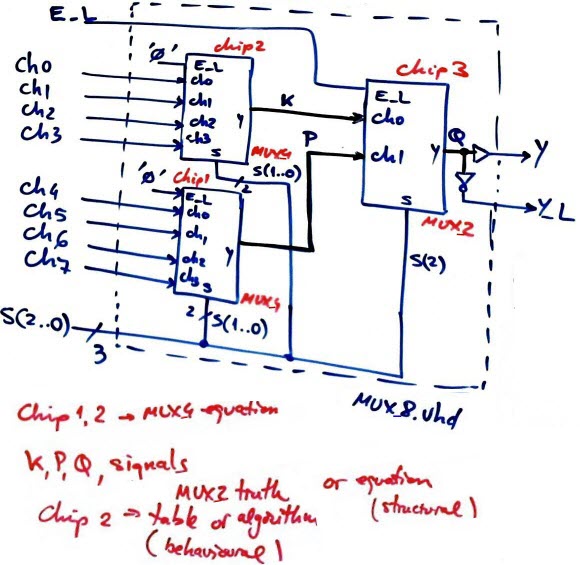 E_L
chip2
'0'
E_L
ch0
ch1
ch2
ch3
Y
S
MUX4
Ch0
Ch1
Ch2
Ch3
K
P
S(1..0)
2
chip 3
E_L
ch0
ch1
Y
S
MUX2
Q
Y
Y_L
S(2)
chip1
'0'
E_L
ch0
ch1
ch2
ch3
Y
S
MUX4
Ch4
Ch5
Ch6
Ch7
2
S(1..0)
S(2..0)
3
MUX_8.vhd
Chip 1,2 → MUX4 equation
K, P, Q, signals
Chip 2 → MUX2 truth
table or algorithm
(behavioural)
or equation
(structural)